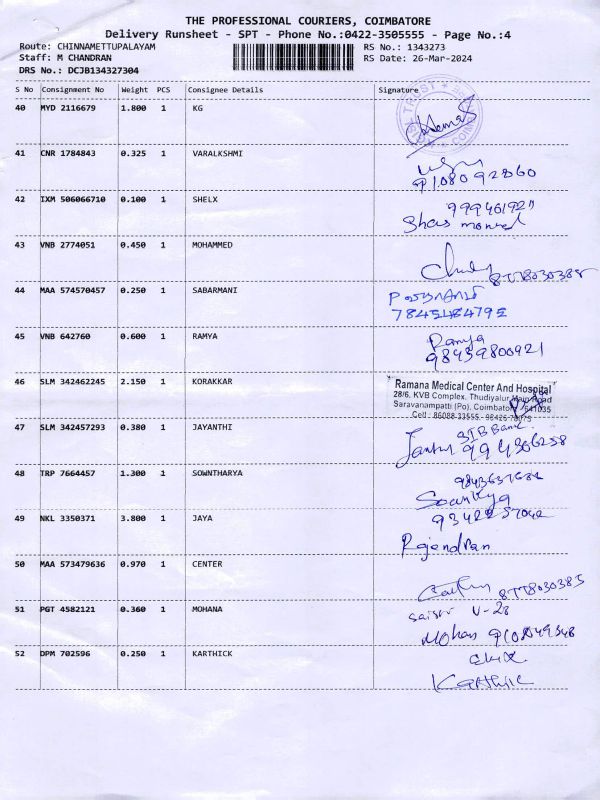 THE PROFESSIONAL COURIERS, COIMBATORE
Delivery Runsheet - SPT - Phone No.:0422-3505555 - Page No.:4
Route: CHINNAMETTUPALAYAM RS No.: 1343273
Staff: M CHANDRAN RS Date: 26-Mar-2024
DRS No.: DCJB134327304
S No Consignment No Weight PCS Consignee Details Signature
40 MYD 2116679 1.800 1 KG
41 CNR 1784843 0.325 1 VARALKSHMI
42 IXM 506066710 0.100 1 SHELX
43 VNB 2774051 0.450 1 MOHAMMED
8778030385
44 MAA 574570457 0.250 1 SABARMANI
7845484795
45 VNB 642760 0.600 1 RAMYA Ramya
98439800921
46 SLM 342462245 2.150 1 KORAKKAR Ramana Medical Center And Hospital
28/6, KVB Complex, Thudiyalur Main Road
Saravanampatti (Po). Coimbatore - 641035
Cell : 86088-33555,
47 SLM 342457293 0.380 1 JAYANTHI
48 TRP 7664457 1.300 1 SOWNTHARYA
49 NKL 3350371 3.800 1 JAYA
Rajendran
50 MAA 573479636 0.970 1 CENTER
8778030385
51 PGT 4582121 0.360 1 MOHANA
Mohan
52 DPM 702596 0.250 1 KARTHICK
Karthic